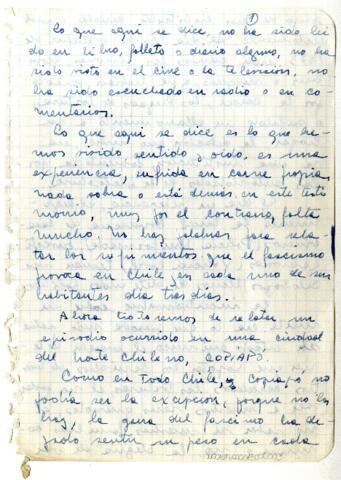 1
Lo que aquí se dice, no ha sido leí
do en libro, folleto o diario alguno, no ha
sido visto en el cine o la televisión, no
ha sido escuchado en radio o en co-
mentarios.
Lo que aquí se dice es lo que he-
mos vivido, sentido y oído, es una
experiencia, sufrida en carne propia
nada sobra o está demás en este testi
monio, muy por el contrario, falta
mucho. No hay palabras para rela-
tar los sufrimientos que el fascismo
provoca en Chile, en cada uno de sus
habitantes día tras días.
Ahora trataremos de relatar un
episodio ocurrido en una ciudad
del Norte Chileno, COPIAPÓ.
Como en todo Chile, y Copiapó no
podía ser la excepción, porque no
hay, la garra del fascismo ha de-
jado sentir su peso en cada